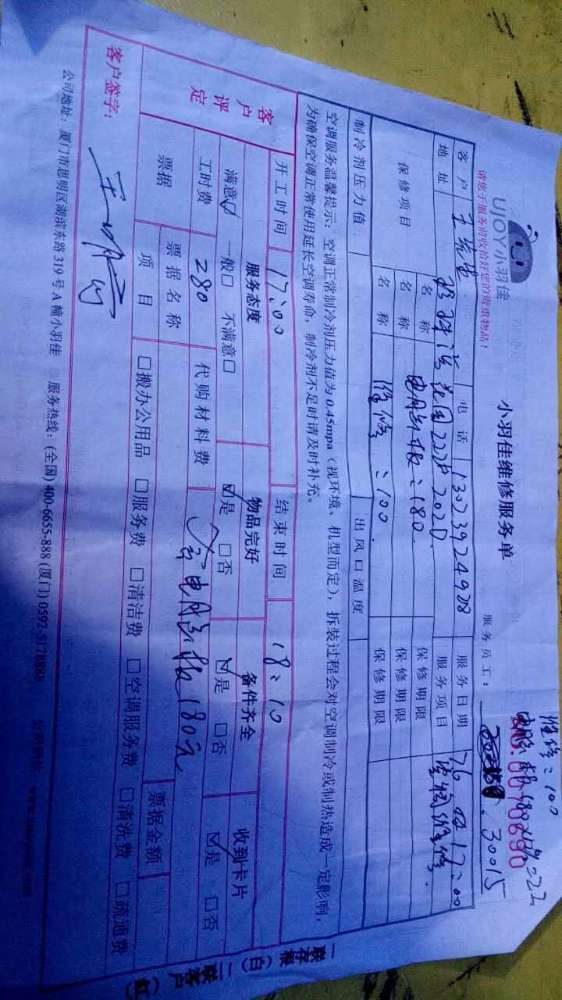 UJOY小羽佳
小羽佳维修服务单
请您于服务前收拾好您的贵重物品！
服务员工： 30015
维修：100
客户 电话 13023924928 服务日期 17:00
地址 服务项目
保修项目 名称 电脑板：180 保修期限
名称 维修：100 保修期限
制冷剂压力值 出风口温度
空调服务温馨提示：空调正常制冷剂压力值为0.45mpa（视环境、机型而定），拆装过程会对空调制冷或制热造成一定影响，
为确保空调正常使用延长空调寿命，制冷剂不足时请及时补充。
开工时间 17:00 结束时间 18:10
客户评定 服务态度 物品完好 备件齐全 收到卡片
满意☑ 一般□ 不满意□ ☑是 □否 ☑是 □否 ☑是 □否
工时费 280 代购材料费 含电脑板180元
票据 票据名称 票据金额
项目 □搬办公用品 □服务费 □清洁费 □空调服务费 □清洗费 □疏通费
客户签字：
公司地址：厦门市思明区湖滨东路319号A幢小羽佳 服务热线：(全国) 400-6655-888 (厦门) 0592-5178888
一联存根（白）二联客户（红）